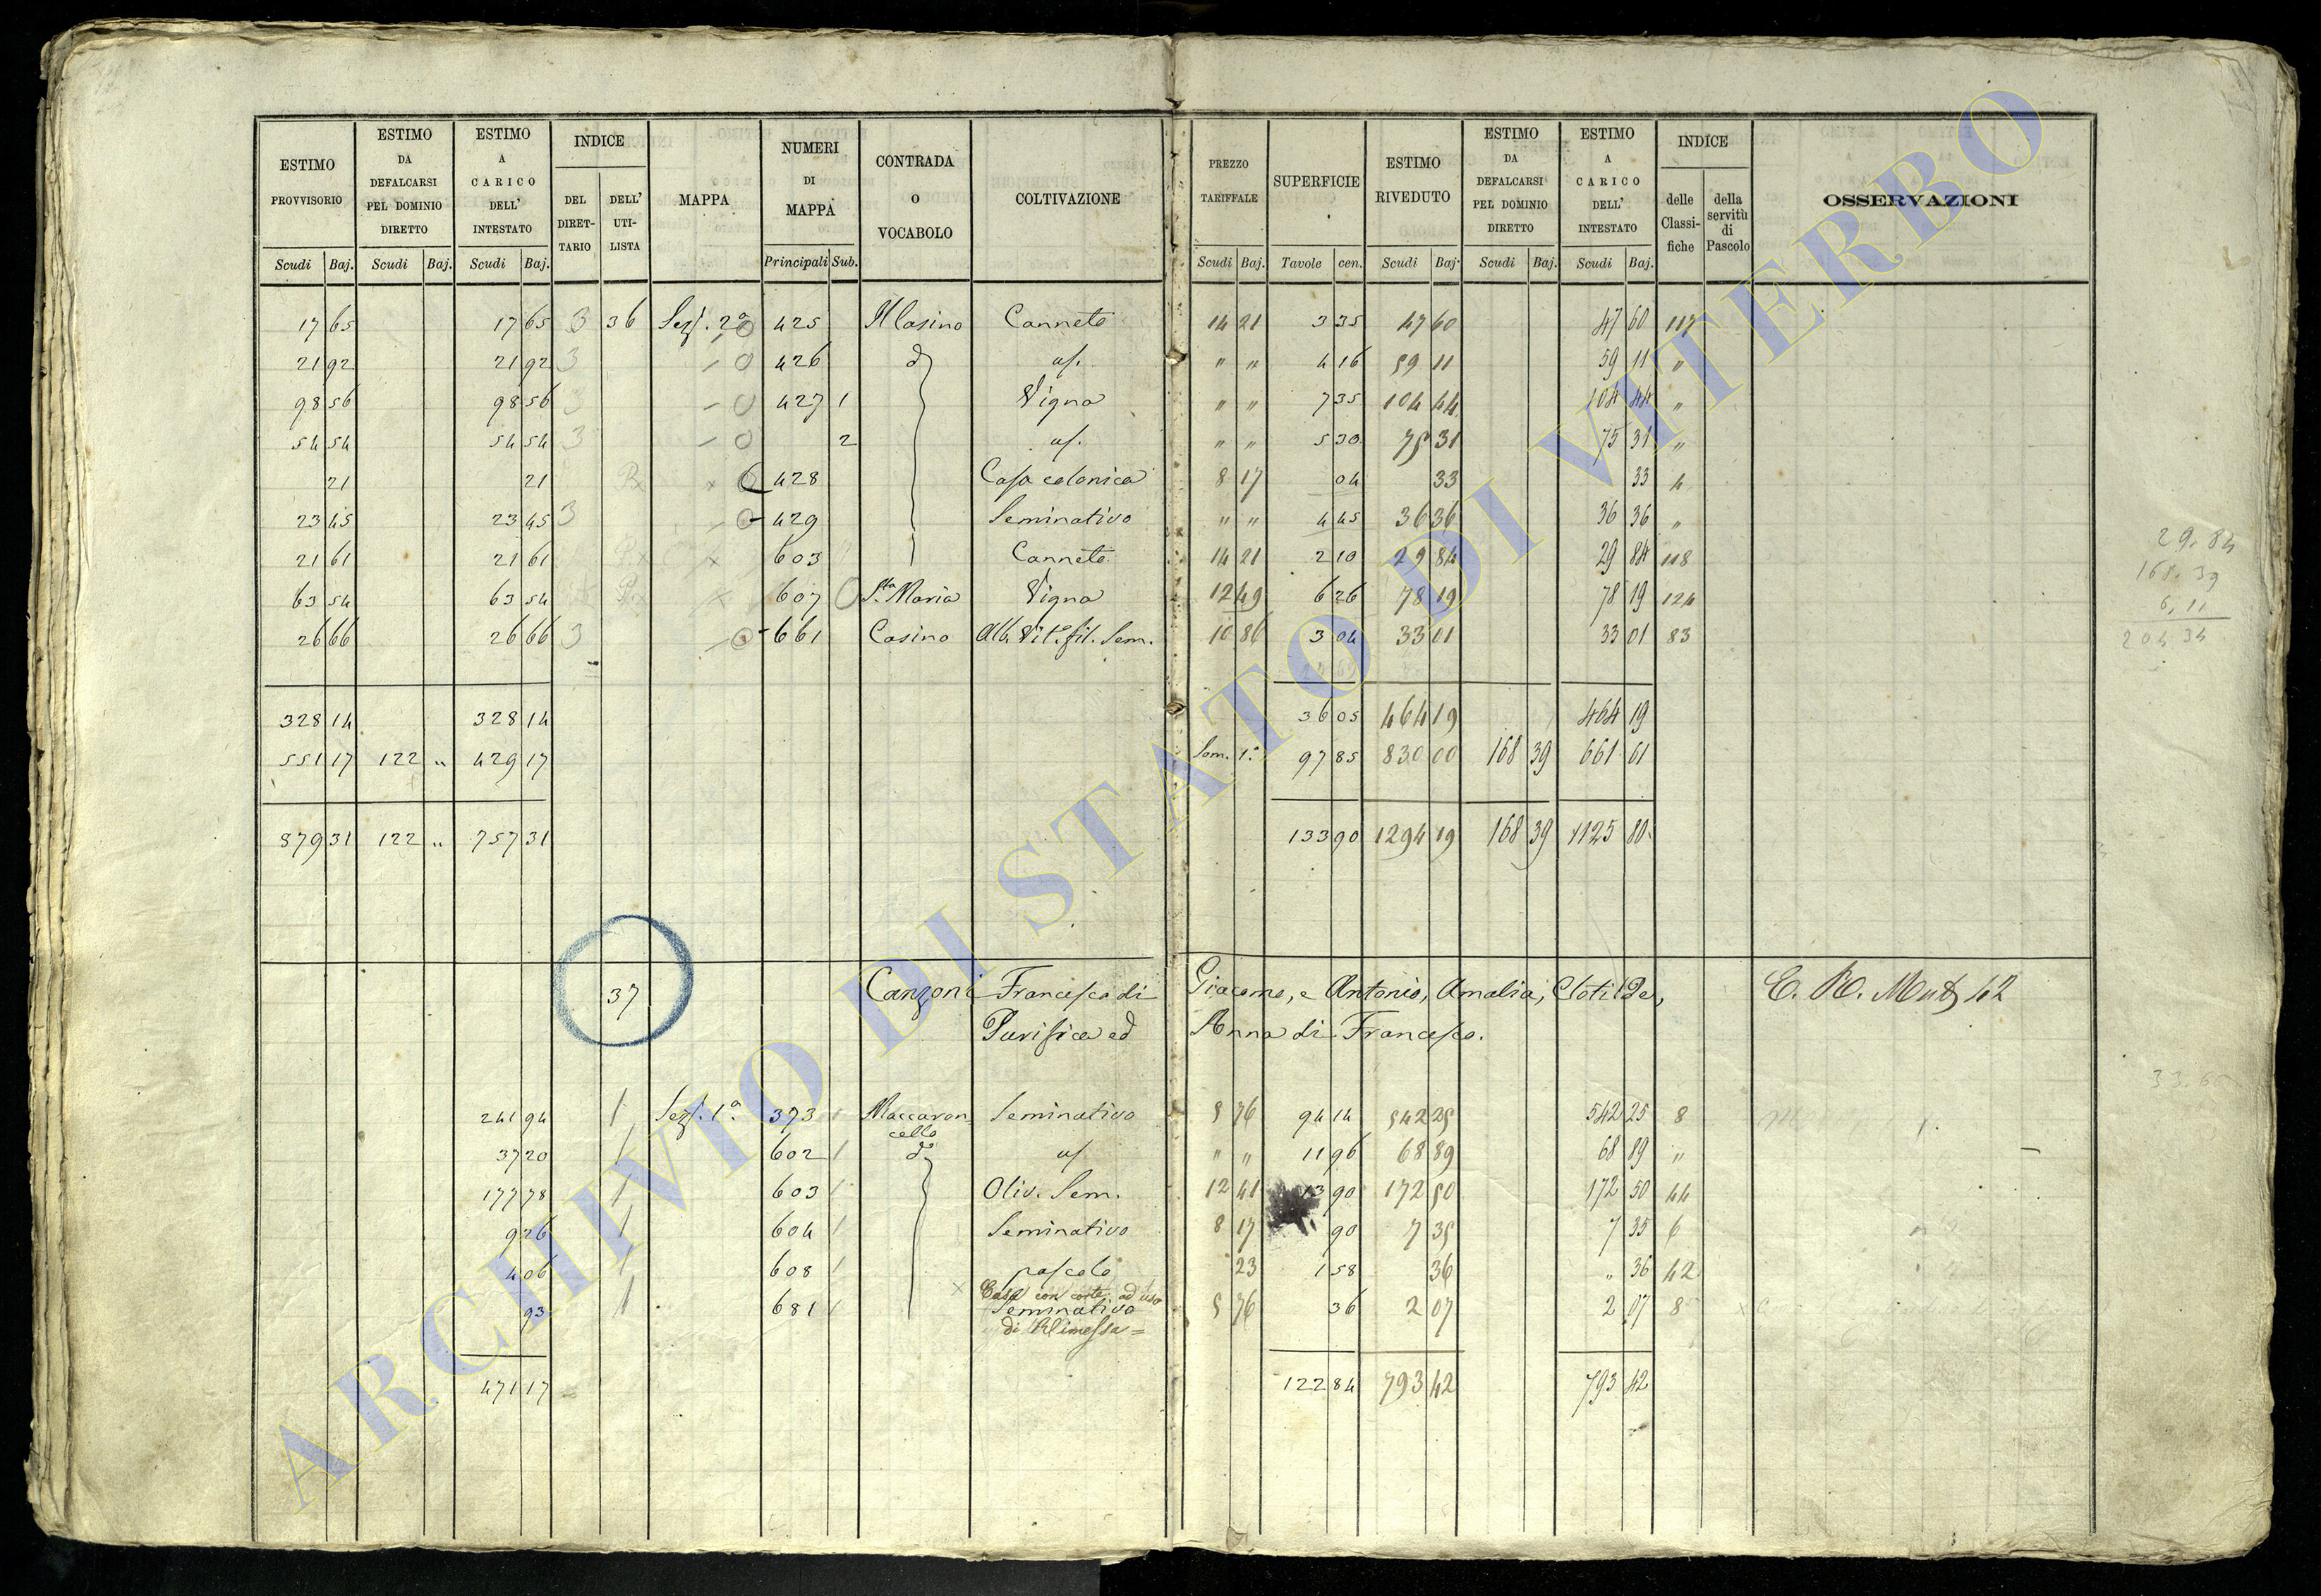 ESTIMO PROVVISORIO | ESTIMO DA DEFALCARSI PEL DOMINIO DIRETTO | ESTIMO A CARICO DELL' INTESTATO | INDICE DEL DIRETTARIO | DELL' UTILISTA | MAPPA | NUMERI DI MAPPA | CONTRADA O VOCABOLO | COLTIVAZIONE | PREZZO TARIFFALE | SUPERFICIE | ESTIMO RIVEDUTO | ESTIMO DA DEFALCARSI PEL DOMINIO DIRETTO | ESTIMO A CARICO DELL' INTESTATO | INDICE delle Classifiche | della servitù di Pascolo | OSSERVAZIONI
Scudi Baj. | Scudi Baj. | Scudi Baj. | Principali Sub. | Scudi Baj. | Tavole cen. | Scudi Baj. | Scudi Baj. | Scudi Baj.
17 65 | 17 65 | 3 | 36 | Sez. 2a | 425 | Il Casino | Canneto | 14 21 | 3 35 | 47 60 | 47 60 | 117
21 92 | 21 92 | 3 | 426 | do | as. | " " | 4 16 | 59 11 | 59 11 | "
98 56 | 98 56 | 3 | 427 1 | Vigna | " " | 7 35 | 104 44 | 104 44 | "
54 54 | 54 54 | 3 | 2 | as. | " " | 5 30 | 75 31 | 75 31 | "
21 | 21 | 428 | Casa colonica | 8 17 | 04 | 33 | 33 | 4
23 45 | 23 45 | 3 | 429 | Seminativo | " " | 4 45 | 36 36 | 36 36 | "
21 61 | 21 61 | 603 | Canneto | 14 21 | 2 10 | 29 84 | 29 84 | 118
63 54 | 63 54 | 607 | Sta Maria | Vigna | 12 49 | 6 26 | 78 19 | 78 19 | 124
26 66 | 26 66 | 3 | 661 | Casino | Alb. Vit. fil. Sem. | 10 86 | 3 04 | 33 01 | 33 01 | 83
328 14 | 328 14 | 36 05 | 464 19 | 464 19
551 17 | 122 " | 429 17 | Som. 1a | 97 85 | 830 00 | 168 39 | 661 61
879 31 | 122 " | 757 31 | 133 90 | 1294 19 | 168 39 | 1125 80
37 | Canzoni Francesco di Giacomo, e Antonio, Amalia, Clotilde,
Purifica ed Anna di Francesco.
241 94 | 1 | Sez. 1a | 373 | Maccaroncello | Seminativo | 5 76 | 94 14 | 542 25 | 542 25 | 8
37 20 | 1 | 602 | do | as | " " | 11 96 | 68 89 | 68 89 | "
177 78 | 1 | 603 | Oliv. Sem. | 12 41 | 13 90 | 172 50 | 172 50 | 44
9 26 | 1 | 604 | Seminativo | 8 17 | 90 | 7 35 | 7 35 | 6
4 06 | 1 | 608 | pascolo | 23 | 1 58 | 36 | " 36 | 42
93 | 1 | 681 | Casa con corte ad uso
Seminativo | 5 76 | 36 | 2 07 | 2 07 | 8
di Rimessa =
471 17 | 122 84 | 793 42 | 793 42
29. 84
168. 39
6, 11
204 34
ARCHIVIO DI STATO DI VITERBO